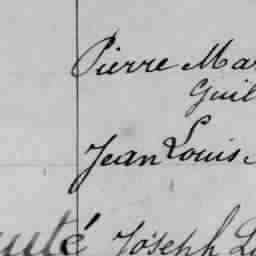 Pierre Mar
Guil
Jean Louis
uté Joseph L